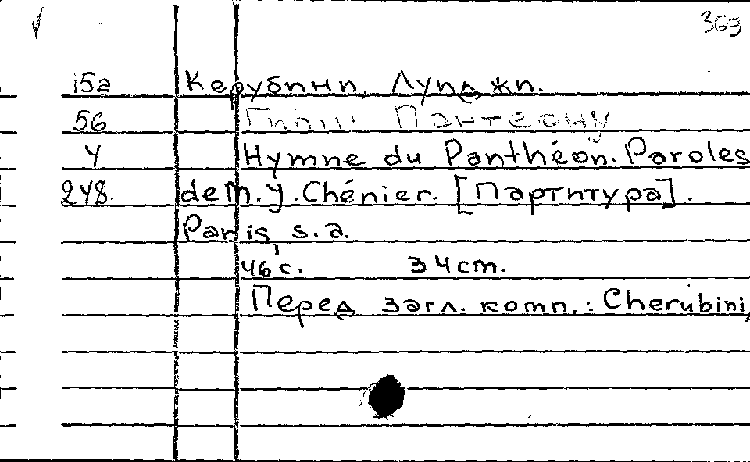 363
15а Керубини, Луиджи.
56 Гимн Пантеону
4 Hymne du Panthéon. Paroles
248. de M. J. Chénier. [Партитура].
Paris, s. a.
46 с. 34 cm.
Перед загл. комп.: Cherubini,